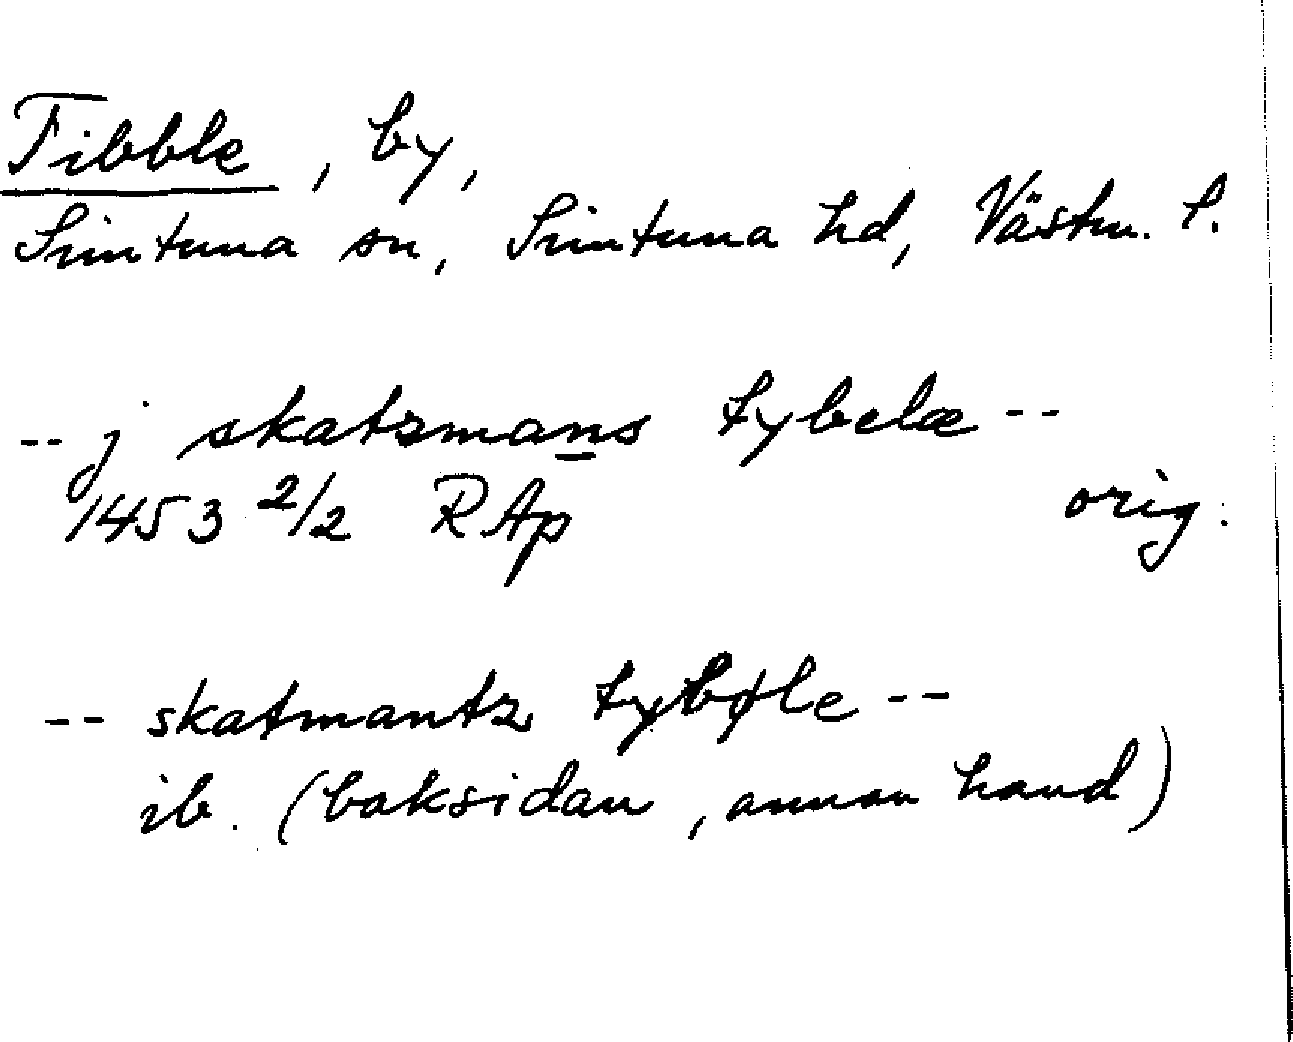 Tibble, by,
Simtuna sn, Simtuna hd, Västm. l.
-- j skatzmans tybelæ --
1453 2/2 RAp orig.
-- skatmantz tybøle --
ib. (baksidan, annan hand)